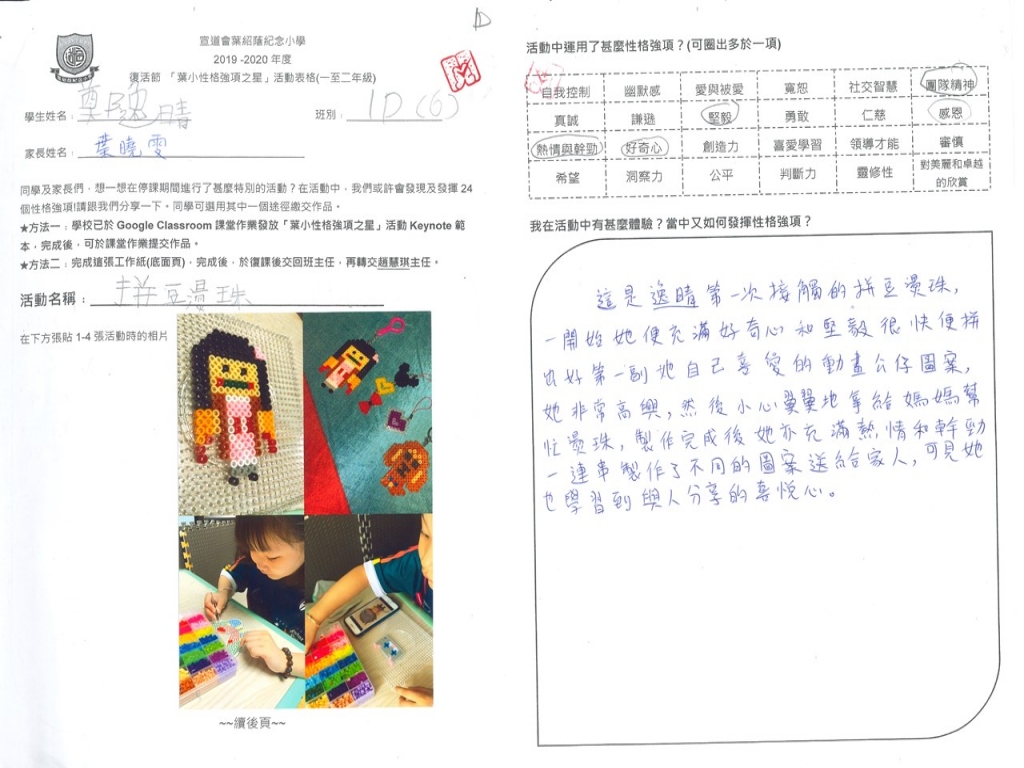 D
宣道會葉紹蔭紀念小學
2019 -2020 年度
復活節 「葉小性格強項之星」活動表格(一至二年級)
學生姓名: 逸晴 班別: 1D (6)
家長姓名: 葉曉雯
同學及家長們，想一想在停課期間進行了甚麼特別的活動？在活動中，我們或許會發現及發揮 24
個性格強項!請跟我們分享一下。同學可選用其中一個途徑繳交作品。
★方法一：學校已於 Google Classroom 課堂作業發放「葉小性格強項之星」活動 Keynote 範
本，完成後，可於課堂作業提交作品。
★方法二：完成這張工作紙(底面頁)，完成後、於復課後交回班主任，再轉交趙慧琪主任。
活動名稱： 拼豆燙珠
在下方張貼 1-4 張活動時的相片
~~續後頁~~
活動中運用了甚麼性格強項？(可圈出多於一項)
自我控制 幽默感 愛與被愛 寬恕 社交智慧 團隊精神
真誠 謙遜 堅毅 勇敢 仁慈 感恩
熱情與幹勁 好奇心 創造力 喜愛學習 領導才能 審慎
希望 洞察力 公平 判斷力 靈修性 對美麗和卓越
的欣賞
我在活動中有甚麼體驗？當中又如何發揮性格強項？
這是逸晴第一次接觸的拼豆燙珠，
一開始她便充滿好奇心和堅毅很快便拼
出好第一副她自己喜愛的動畫公仔圖案，
她非常高興，然後小心翼翼地拿給媽媽幫
忙燙珠，製作完成後她亦充滿熱情和幹勁
一連串製作了不同的圖案送給家人，可見她
也學習到與人分享的喜悅心。